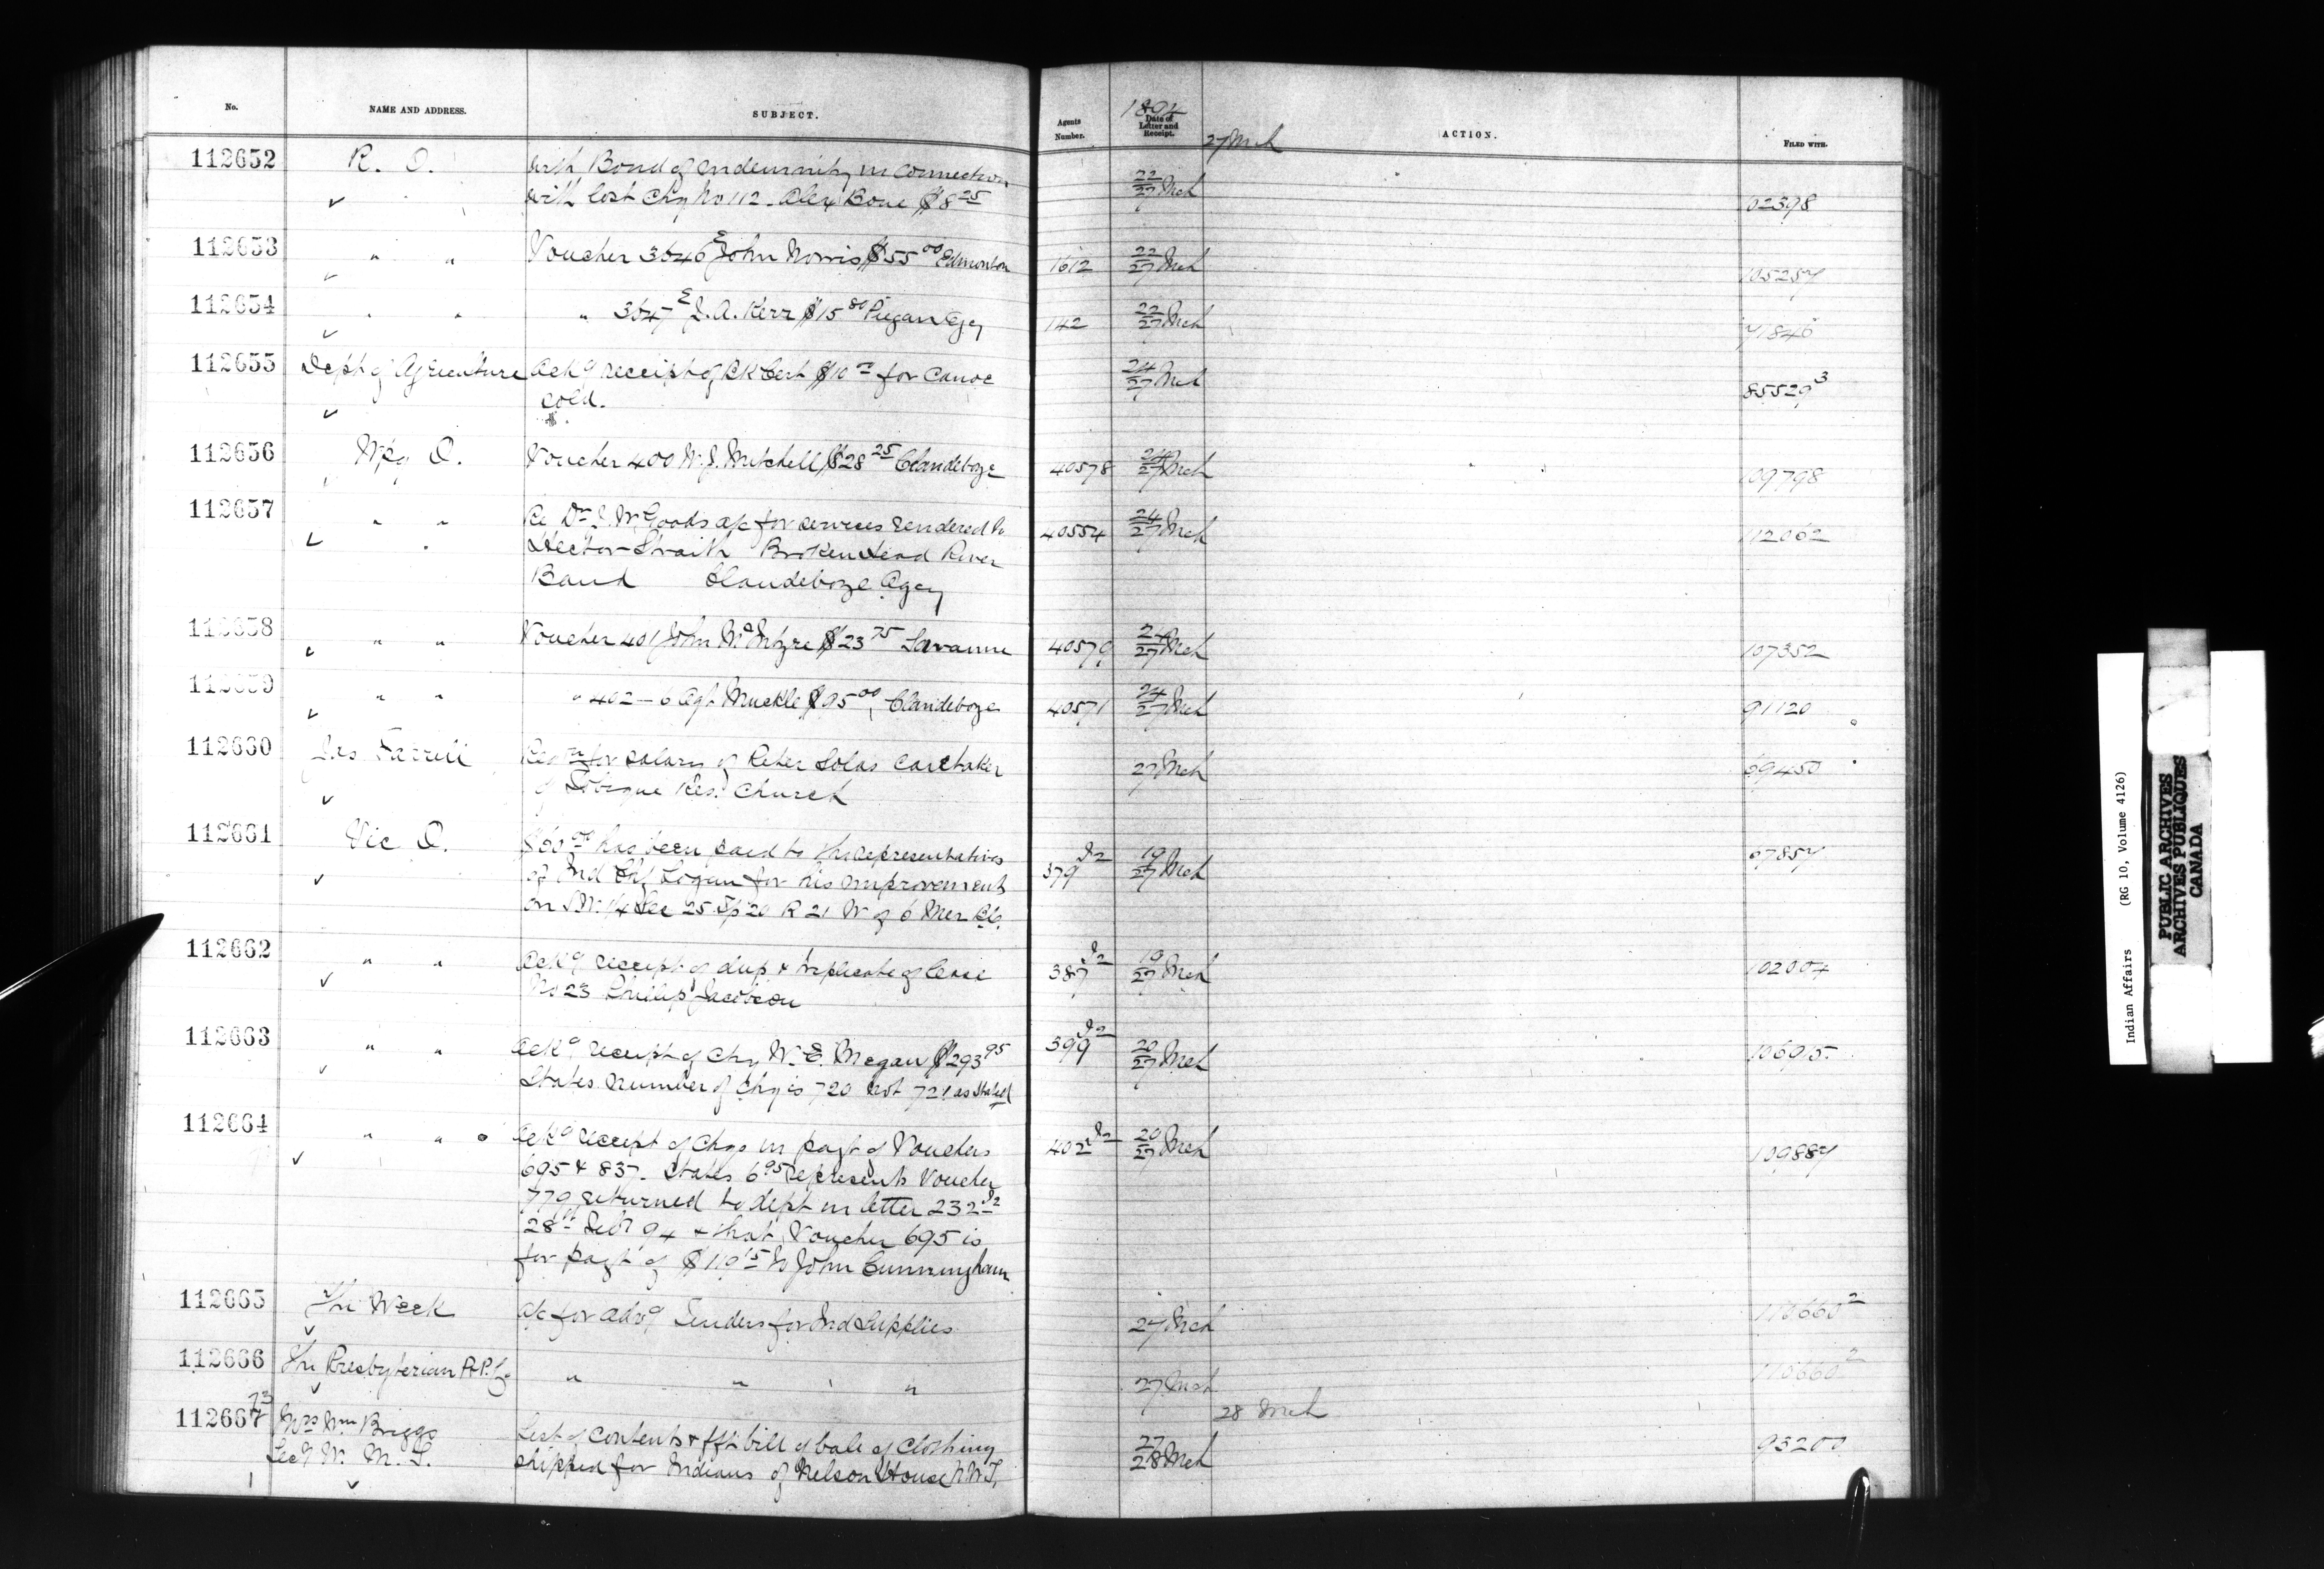 No. NAME AND ADDRESS. SUBJECT. Agents Number. 1894 Date of Letter and Receipt. ACTION. FILED WITH.
27 Mch
112652 R. O. With Bond of Indemnity in connection 22/27 Mch 02398
with lost Chq No 112 - Alex Bone $8 25
112653 " " Voucher 3646 E John Norris $55 00 Edmonton 1612 22/27 Mch 105254
112654 " " " 3647 E J. A. Kerr $15 80 Piegan Agcy 142 22/27 Mch 71846
112655 Dept of Agriculture Ackg receipt of Bk Cert $10 for Canoe 24/27 Mch 85529 3
sold.
112656 Wpg O. Voucher 400 W. J. Mitchell $28 25 Clandeboye 40578 24/27 Mch 109798
112657 " " Re Dr J. W. Goods a/c for services rendered to 40554 24/27 Mch 112062
Hector Straith Broken Head River
Band Clandeboye Agcy
112658 " " Voucher 401 John McIntyre $23 75 Savanne 40579 24/27 Mch 107352
112659 " " " 402-6 Agt Muckle $95 00 Clandeboye 40571 24/27 Mch 91120
112660 Jas Farrell for salary of Peter Solas Caretaker 27 Mch 69450
of Tobique Res. Church
112661 Vic O. $60 00 has been paid to the representatives 379 I2 19/27 Mch 97854
of Ind Logan for his improvements
on S.W. 1/4 Sec 25 Tp 20 R 21 W of 6 Mer BC.
112662 " " Ackg receipt of dup & triplicate of lease 387 I2 19/27 Mch 102004
No 23 Philip Jacobson
112663 " " Ackg receipt of Chq W. E. Megan $293 95 399 I2 20/27 Mch 106915
States number of Chq is 720 not 721 as stated
112664 " " Ackg receipt of Chqs in payt of Vouchers 402 I2 20/27 Mch 109884
695 & 837. States 6 95 represents Voucher
779 returned to dept in letter 232 I2
28th Feby 94 & that Voucher 695 is
for payt of $119 15 to John Cunningham
112665 The Week a/c for advg Tenders for Ind Supplies 27 Mch 110660 2
112666 The Presbyterian P. Co " " " 27 Mch 110660 2
28 Mch
112667 73 Mrs Wm Briggs List of contents & fft bill of bale of Clothing 27/28 Mch 93200
Secy W. M. S. shipped for Indians of Nelson House N.W.T.
Indian Affairs (RG 10, Volume 4126)
PUBLIC ARCHIVES
ARCHIVES PUBLIQUES
CANADA